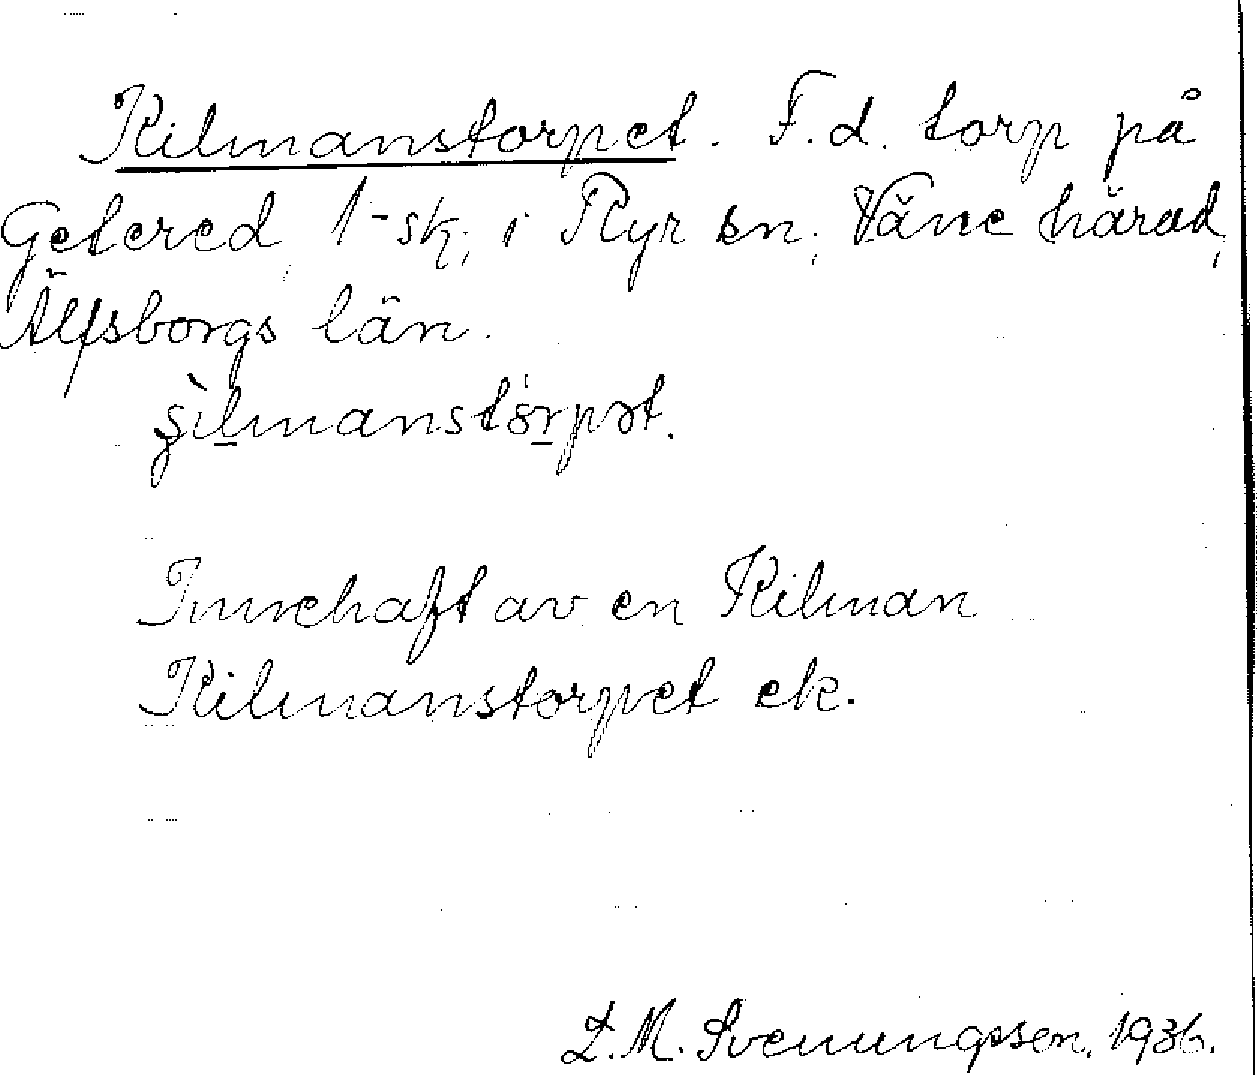 Kilmanstorpet. F.d. torp på
Getered 1-sk, i Ryr sn, Väne härad,
Älfsborgs län.
s̨ìlmanstór̲pət.
Innehaft av en Kilman
Kilmanstorpet ek.
L. M. Svenungsson. 1936.